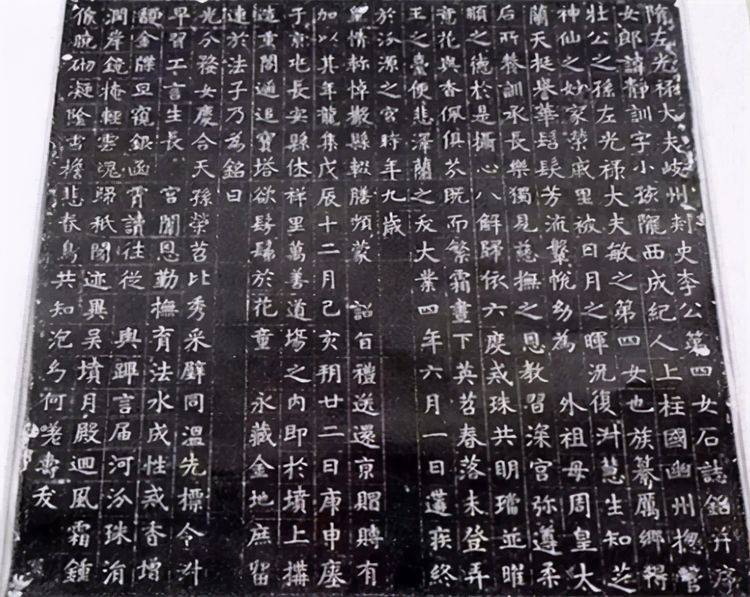 隋左光祿大夫岐州刺史李公第四女石誌銘并序
女郎諱靜訓字小孩隴西成紀人上柱國幽州揔管
壯公之孫左光祿大夫敏之第四女也族纂厲鄉得
神仙之妙家榮戚里被日月之暉況復淑慧生知芝
蘭天挺譽華髫髮芳流鞶帨幼為 外祖母周皇太
后所養訓承長樂獨見慈撫之恩教習深宮弥遵柔
順之德於是攝心八解歸依六度戒珠共明璫並曜
意花與香佩俱芬既而繁霜晝下英苕春落未登弄
玉之臺便悲澤蘭之夭大業四年六月一日遘疾終
於汾源之宮時年九歲
皇情軫悼撤縣輟膳頻蒙 詔旨禮送還京賵賻有
加以其年龍集戊辰十二月己亥朔廿二日庚申瘞
于京兆長安縣休祥里萬善道場之內即於墳上搆
造重閣遹追寶塔欲髣髴於花童 永藏金地庶留
連於法子乃為銘曰
光分婺女慶合天孫榮苕比秀采璧同溫先標令淑
早習工言生長 宮闈恩勤撫育法水成性戒香增
馥金牒旦窺銀函霄讀往從 輿蹕言屆河汾珠涓
潤岸鏡掩輕雲魂歸秖閣迹異吳墳月殿迴風霜鍾
候晚砌凝陰雪檐悲春鳥共知泡幻何嗟壽夭